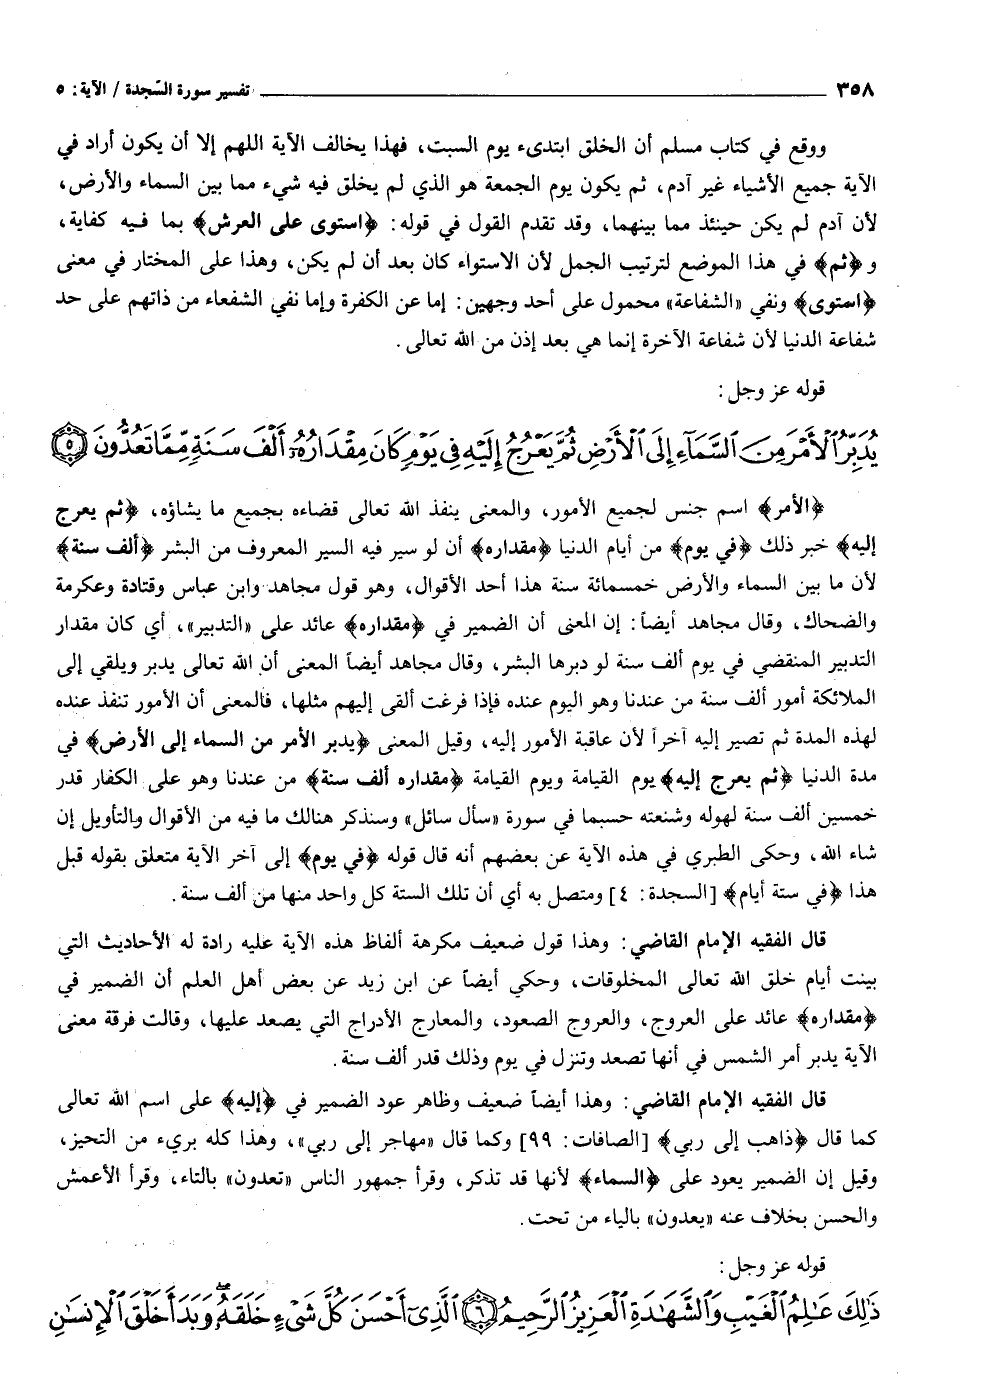 ٣٥٨ تفسير سورة السّجدة / الآية: ٥
ووقع في كتاب مسلم أن الخلق ابتدىء يوم السبت، فهذا يخالف الآية اللهم إلا أن يكون أراد في
الآية جميع الأشياء غير آدم، ثم يكون يوم الجمعة هو الذي لم يخلق فيه شيء مما بين السماء والأرض،
لأن آدم لم يكن حينئذ مما بينهما، وقد تقدم القول في قوله: ﴿استوى على العرش﴾ بما فيه كفاية،
و ﴿ثم﴾ في هذا الموضع لترتيب الجمل لأن الاستواء كان بعد أن لم يكن، وهذا على المختار في معنى
﴿استوى﴾ ونفي «الشفاعة» محمول على أحد وجهين: إما عن الكفرة وإما نفي الشفعاء من ذاتهم على حد
شفاعة الدنيا لأن شفاعة الآخرة إنما هي بعد إذن من الله تعالى.
قوله عز وجل:
يُدَبِّرُ ٱلْأَمْرَ مِنَ ٱلسَّمَآءِ إِلَى ٱلْأَرْضِ ثُمَّ يَعْرُجُ إِلَيْهِ فِى يَوْمٍ كَانَ مِقْدَارُهُۥٓ أَلْفَ سَنَةٍ مِّمَّا تَعُدُّونَ ۝٥
﴿الأمر﴾ اسم جنس لجميع الأمور، والمعنى ينفذ الله تعالى قضاءه بجميع ما يشاؤه، ﴿ثم يعرج
إليه﴾ خبر ذلك ﴿في يوم﴾ من أيام الدنيا ﴿مقداره﴾ أن لو سير فيه السير المعروف من البشر ﴿ألف سنة﴾
لأن ما بين السماء والأرض خمسمائة سنة هذا أحد الأقوال، وهو قول مجاهد وابن عباس وقتادة وعكرمة
والضحاك، وقال مجاهد أيضاً: إن المعنى أن الضمير في ﴿مقداره﴾ عائد على «التدبير»، أي كان مقدار
التدبير المنقضي في يوم ألف سنة لو دبرها البشر، وقال مجاهد أيضاً المعنى أن الله تعالى يدبر ويلقي إلى
الملائكة أمور ألف سنة من عندنا وهو اليوم عنده فإذا فرغت ألقى إليهم مثلها، فالمعنى أن الأمور تنفذ عنده
لهذه المدة ثم تصير إليه آخراً لأن عاقبة الأمور إليه، وقيل المعنى ﴿يدبر الأمر من السماء إلى الأرض﴾ في
مدة الدنيا ﴿ثم يعرج إليه﴾ يوم القيامة ويوم القيامة ﴿مقداره ألف سنة﴾ من عندنا وهو على الكفار قدر
خمسين ألف سنة لهوله وشنعته حسبما في سورة «سأل سائل» وسنذكر هنالك ما فيه من الأقوال والتأويل إن
شاء الله، وحكى الطبري في هذه الآية عن بعضهم أنه قال قوله ﴿في يوم﴾ إلى آخر الآية متعلق بقوله قبل
هذا ﴿في ستة أيام﴾ [السجدة: ٤] ومتصل به أي أن تلك الستة كل واحد منها من ألف سنة.
قال الفقيه الإمام القاضي: وهذا قول ضعيف مكرهة ألفاظ هذه الآية عليه رادة له الأحاديث التي
بينت أيام خلق الله تعالى المخلوقات، وحكي أيضاً عن ابن زيد عن بعض أهل العلم أن الضمير في
﴿مقداره﴾ عائد على العروج، والعروج الصعود، والمعارج الأدراج التي يصعد عليها، وقالت فرقة معنى
الآية يدبر أمر الشمس في أنها تصعد وتنزل في يوم وذلك قدر ألف سنة.
قال الفقيه الإمام القاضي: وهذا أيضاً ضعيف وظاهر عود الضمير في ﴿إليه﴾ على اسم الله تعالى
كما قال ﴿ذاهب إلى ربي﴾ [الصافات: ٩٩] وكما قال «مهاجر إلى ربي»، وهذا كله بريء من التحيز،
وقيل إن الضمير يعود على ﴿السماء﴾ لأنها قد تذكر، وقرأ جمهور الناس «تعدون» بالتاء، وقرأ الأعمش
والحسن بخلاف عنه «يعدون» بالياء من تحت.
قوله عز وجل:
ذَٰلِكَ عَـٰلِمُ ٱلْغَيْبِ وَٱلشَّهَـٰدَةِ ٱلْعَزِيزُ ٱلرَّحِيمُ ۝٦ ٱلَّذِىٓ أَحْسَنَ كُلَّ شَىْءٍ خَلَقَهُۥ ۖ وَبَدَأَ خَلْقَ ٱلْإِنسَـٰنِ